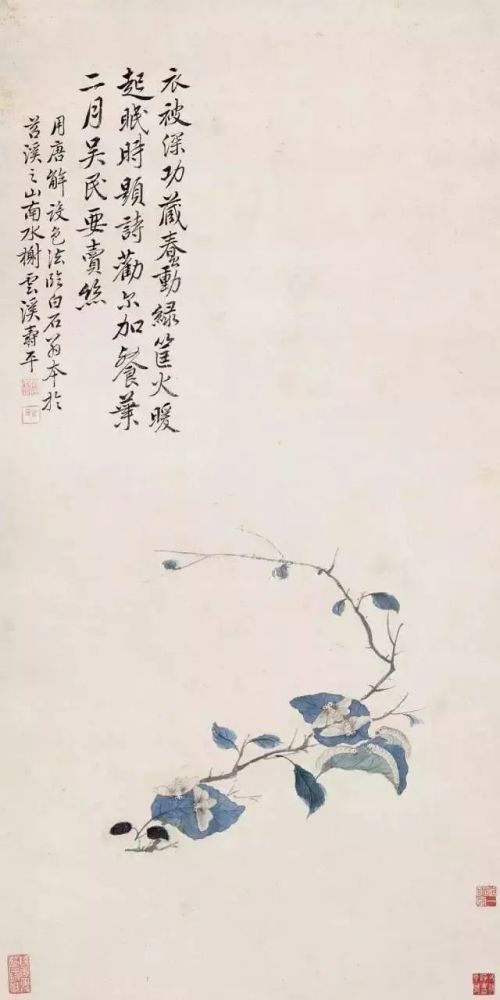 衣被深功藏蠢動綠筐火暖
起眠時題詩勸尔加餐葉
二月吳民要賣絲
用唐解設色法臨白石翁本於
苕溪之山南水榭雲溪壽平